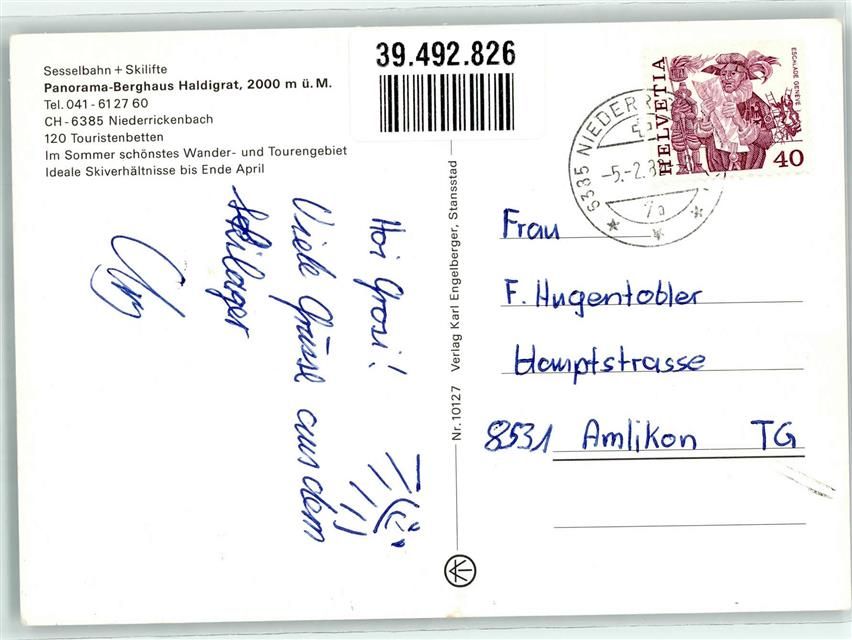 Sesselbahn + Skilifte
Panorama-Berghaus Haldigrat, 2000 m ü. M.
Tel. 041 - 61 27 60
CH - 6385 Niederrickenbach
120 Touristenbetten
Im Sommer schönstes Wander- und Tourengebiet
Ideale Skiverhältnisse bis Ende April
39.492.826
Hoi Grosi!
Viele Grüsse aus dem
Skilager
Nr. 10127 Verlag Karl Engelberger, Stansstad
6385 NIEDERR
-5.-2.8
HELVETIA
ESCALADE GENÈVE
40
Frau
F. Hugentobler
Hauptstrasse
8531 Amlikon TG